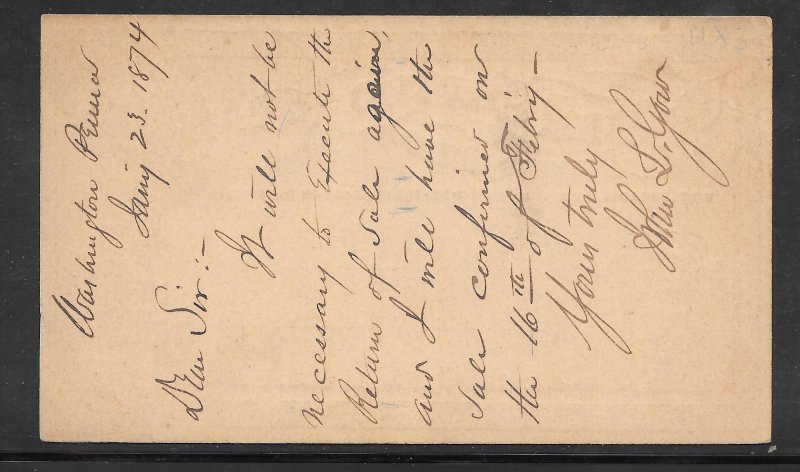 Washington Penna
Jany 23. 1874
Dear Sir:-
It will not be
necessary to Execute the
Return of Sale again,
and I will have the
Sale confirmed on
the 16th of Feby-
Yours truly
Jno L. Gow